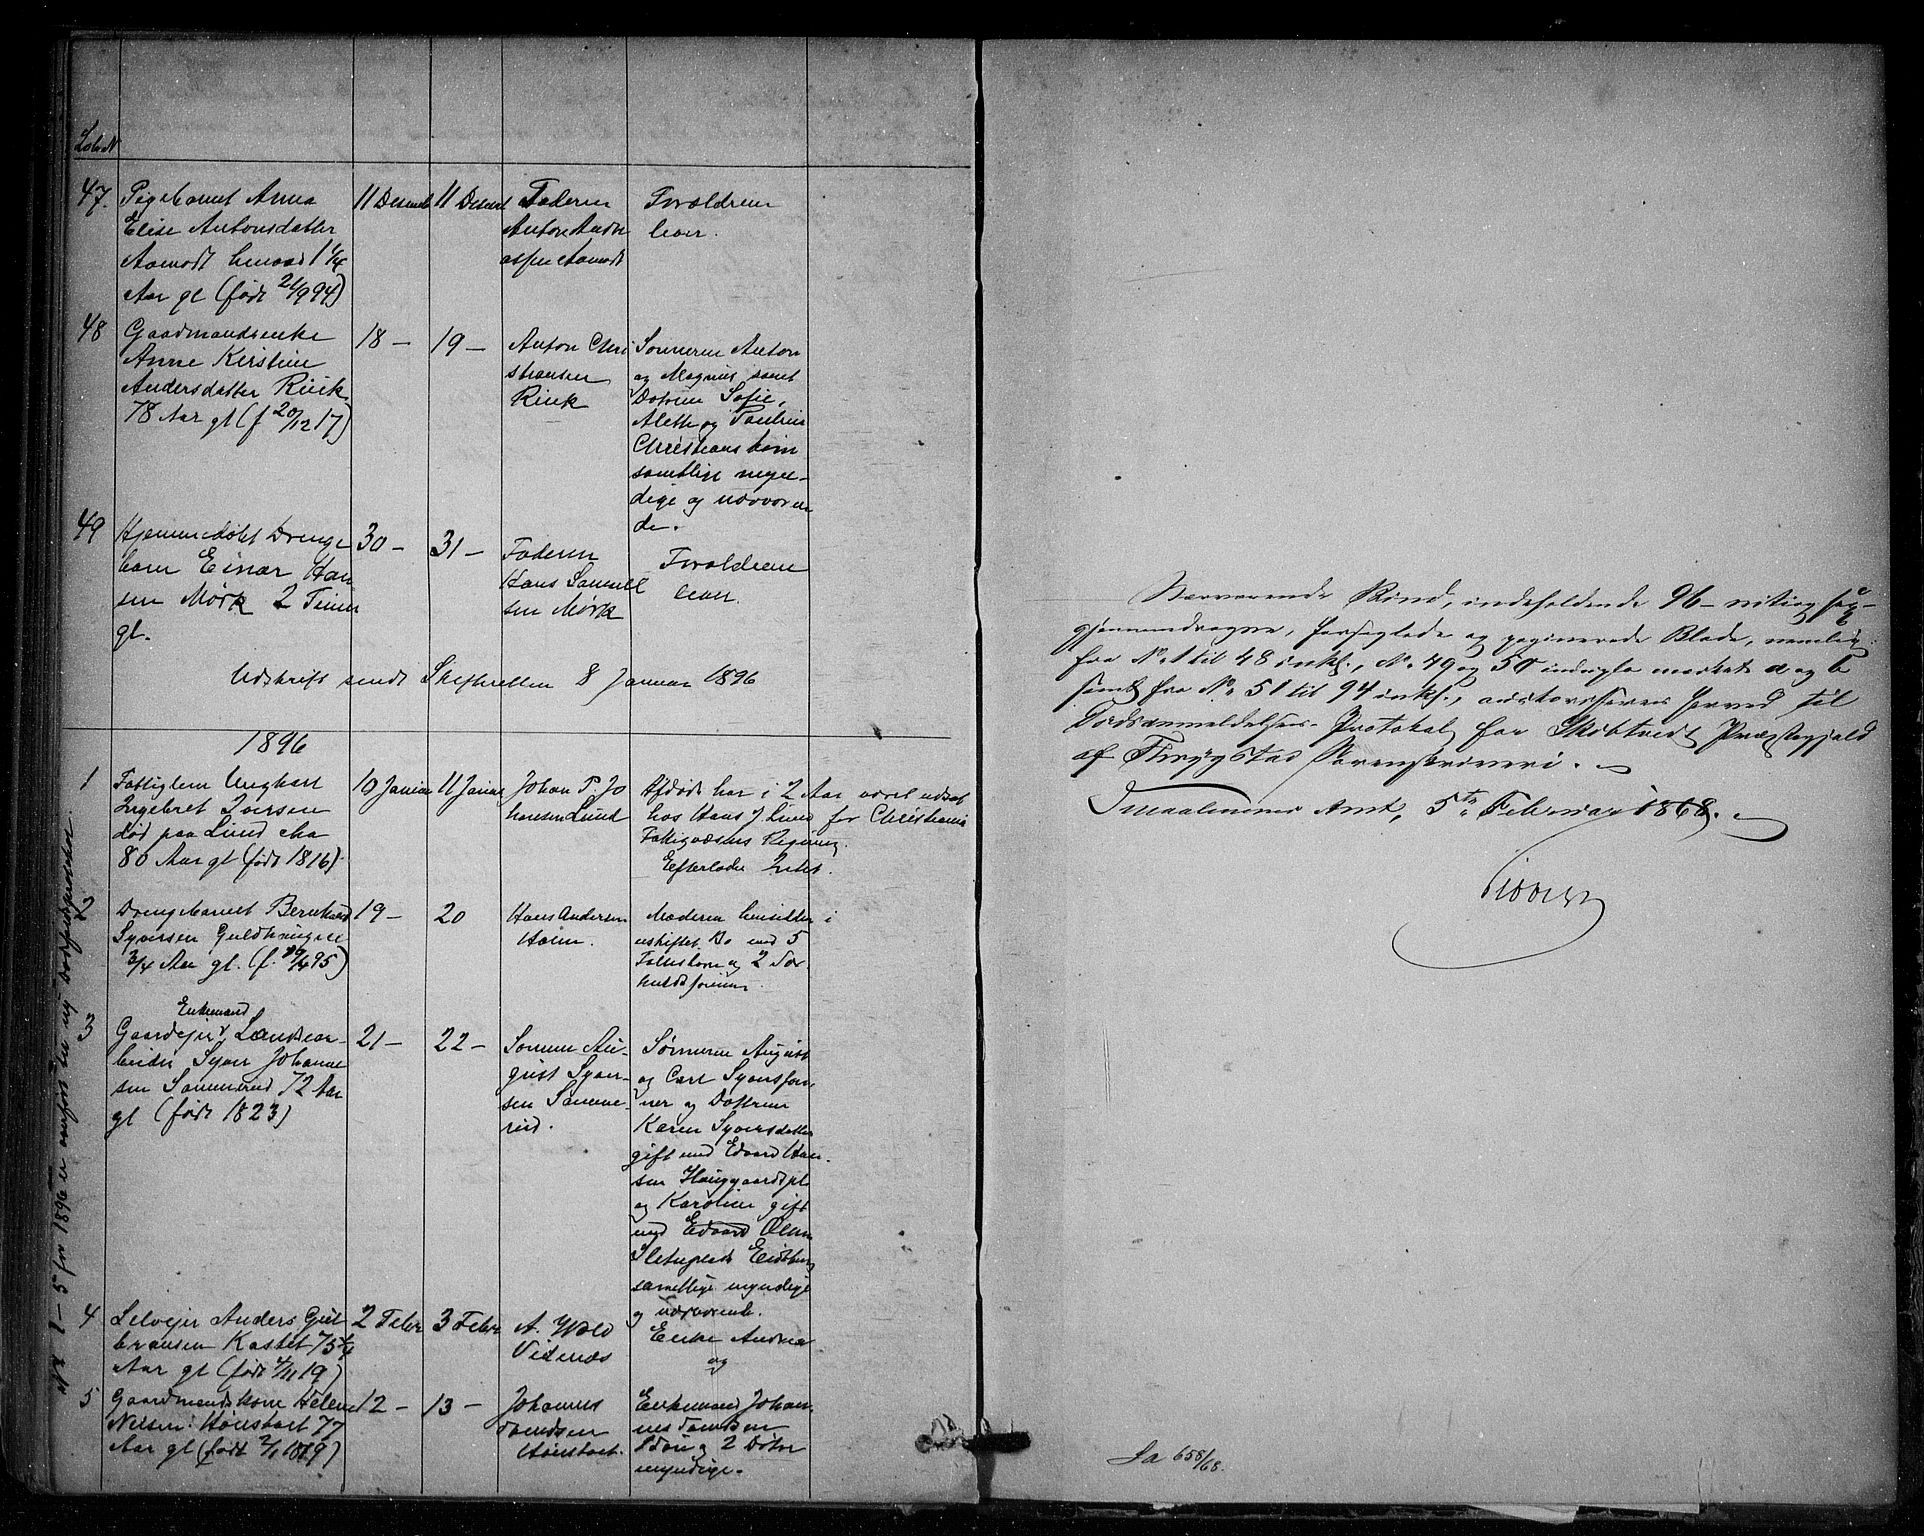 LøbeN
47.
Pigebarnet Anna
Elise Antonsdatter
Aamodt henved 1 1/4
Aar gl (født 21/9 94)
11 Decemb
11 Decemb
Faderen
Anton Andr
easen Aamodt
Forældrene
lever.
48
Gaardmandsenke
Anne Kirstine
Andersdatter Riiik
78 Aar gl (f 20/12 17)
18 —
19 —
Anton Chri
stiansen
Sønnerne Anton
og Magnus samt
Døtrene Sofie,
Alethe og Pauline
Christiansbørn
samtlige myn-
dige og nærværen
de.
49
Hjemmedøbt Drenge
barn Einar Han
sen Mørk 2 Timer
gl.
30 —
31 —
Faderen
Hans Samuel
sen Mørk
Forældrene
lever.
Udskrift sendt Skifteretten 8 Januar 1896
1896
1
Fattiglem Ungkarl
Ingebret Iversen
død paa Lund cha
80 Aar gl (født 1816)
10 Januar
11 Januar
Johan P. Jo
hansen Lund
Afdøde har i 2 Aar været udsat
hos Hans J Lund for Christiania
Fattigvæsens Regning.
Efterlader Intet.
2
Drengebarnet Bernhard
Syversen Guldhaugen
3/4 Aar gl. (f. 29/4 95)
19 —
20
Hans Andersen
Holm.
Moderen hensidder i
uskiftet Bo med 5
3
Enkemand
Gaardejer, Landhan-
Syver Johanne
sen Sammerud 72 Aar
gl (født 1823)
21 —
22 —
Sønnen Au-
gust Syver-
sen Samme-
rud.
Sønnerne August
og Carl Syverssøn-
ner og Døttrene
Karen Syversdatter
gift med Edvard Han-
sen Hauggaardspl
og Karoline gift
med Edvard Olsen
Eidsberg
samtlige myndige
og nærværende.
4
Selvejer Anders Gul
bransen Kastet 75 1/4
Aar gl (født 4/11 19)
2 Febr
3 Febr
A. Wold
Vidnæs
Enke Andrea
og
5
Gaardmandskone Helene
Nilsen Hønsbaet 77
Aar gl (født 2/1 1819)
12 —
13 —
Johannes
Tomtsen
Hønsbaet.
Enkemand Johan-
nes Tomtsen
1 Søn og 2 Døtre
myndige.
No 1 – 5 for 1896 er indført i en ny Dødsfaldsprotokol.
Nærværende Bind, indeholdende 96 – nitiog sex –
gjennemdragne, forseglede og paginerede Blade, nemlig:
fra No. 1 til 48 inkl., No. 49 og 50 mærket a og b
samt fra No. 51 til 94 inkl., autoriseres herved til
Dødsanmeldelses-Protokol for Skibtvedt Præstegjeld
af Thrygstad Sorenskriveri.
Smaalenenes Amt, 5te Februar 1868.
Sa 658/68.